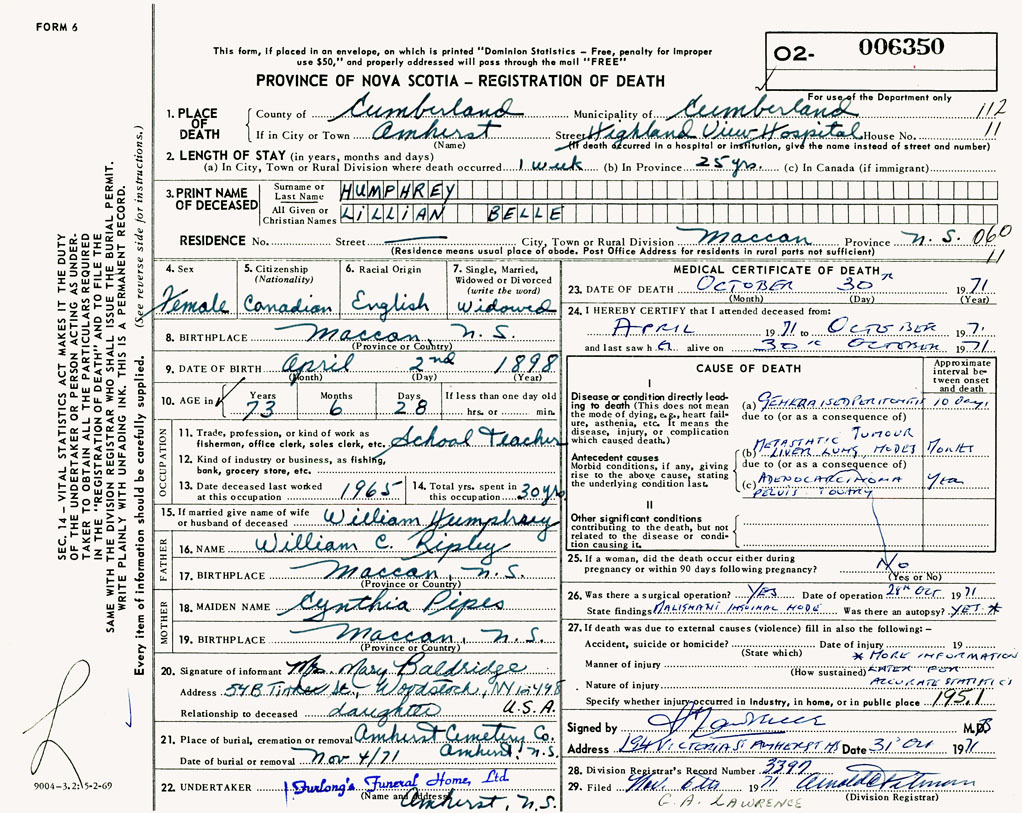 FORM 6
This form, if placed in an envelope, on which is printed "Dominion Statistics – Free, penalty for improper
use $50," and properly addressed will pass through the mail "FREE"
PROVINCE OF NOVA SCOTIA – REGISTRATION OF DEATH
O2- 006350
For use of the Department only
1. PLACE OF DEATH
County of Cumberland Municipality of Cumberland 112
If in City or Town Amherst Street Highland View Hospital House No. 11
(Name) (If death occurred in a hospital or institution, give the name instead of street and number)
2. LENGTH OF STAY (in years, months and days)
(a) In City, Town or Rural Division where death occurred 1 week (b) In Province 25 yrs. (c) In Canada (if immigrant)
3. PRINT NAME OF DECEASED
Surname or Last Name HUMPHREY
All Given or Christian Names LILLIAN BELLE
RESIDENCE No. Street City, Town or Rural Division Maccan Province N.S. 060
(Residence means usual place of abode. Post Office Address for residents in rural parts not sufficient) 11
4. Sex
Female
5. Citizenship
(Nationality)
Canadian
6. Racial Origin
English
7. Single, Married,
Widowed or Divorced
(write the word)
Widowed
8. BIRTHPLACE Maccan, N.S.
(Province or Country)
9. DATE OF BIRTH April 2nd 1898
(Month) (Day) (Year)
10. AGE in Years Months Days If less than one day
73 6 28 hrs. or min.
OCCUPATION
11. Trade, profession, or kind of work as
fisherman, office clerk, sales clerk, etc. School Teacher
12. Kind of industry or business, as fishing,
bank, grocery store, etc.
13. Date deceased last worked
at this occupation 1965
14. Total yrs. spent in
this occupation 30 yrs
15. If married give name of wife
or husband of deceased William Humphrey
FATHER
16. NAME William C. Ripley
17. BIRTHPLACE Maccan, N.S.
(Province or Country)
MOTHER
18. MAIDEN NAME Cynthia Pipes
19. BIRTHPLACE Maccan, N.S.
(Province or Country)
20. Signature of informant Mrs. Mary Baldridge
Address 54B St., Woodstock, NY 12498
Relationship to deceased daughter U.S.A.
21. Place of burial, cremation or removal Amherst Cemetery Co.
Amherst, N.S.
Date of burial or removal Nov 4/71
22. UNDERTAKER Furlong's Funeral Home, Ltd.
(Name and Address) Amherst, N.S.
MEDICAL CERTIFICATE OF DEATH
23. DATE OF DEATH OCTOBER 30th 1971
(Month) (Day) (Year)
24. I HEREBY CERTIFY that I attended deceased from:
APRIL 1971 to OCTOBER 1971
and last saw her alive on 30th OCTOBER 1971
CAUSE OF DEATH
Approximate
interval be-
tween onset
and death
I
Disease or condition directly lead-
ing to death (This does not mean
the mode of dying, e.g., heart fail-
ure, asthenia, etc. It means the
disease, injury, or complication
which caused death.)
(a) GENERALISED PERITONITIS 10 Days
due to (or as a consequence of)
Antecedent causes
Morbid conditions, if any, giving
rise to the above cause, stating
the underlying condition last.
METASTATIC TUMOUR
(b) LIVER LUNG, NODES
due to (or as a consequence of)
(c) ADENOCARCINOMA
PELVIS ? OVARY
II
Other significant conditions
contributing to the death, but not
related to the disease or condi-
tion causing it.
25. If a woman, did the death occur either during
pregnancy or within 90 days following pregnancy? No
(Yes or No)
26. Was there a surgical operation? YES Date of operation 28th OCT 1971
State findings MALIGNANT INGUINAL NODE Was there an autopsy? YET *
27. If death was due to external causes (violence) fill in also the following: –
Accident, suicide or homicide? Date of injury 19
(State which) * MORE INFORMATION
Manner of injury LATER FOR
(How sustained) ACCURATE STATISTICS
Nature of injury
Specify whether injury occurred in Industry, in home, or in public place 195.1
Signed by M.D.
Address 194 VICTORIA ST AMHERST NS Date 31 Oct 1971
28. Division Registrar's Record Number 3397
29. Filed Nov. 6th 1971
(Division Registrar)
G. A. LAWRENCE
SEC. 14 – VITAL STATISTICS ACT MAKES IT THE DUTY
OF THE UNDERTAKER OR PERSON ACTING AS UNDER-
TAKER TO OBTAIN ALL THE PARTICULARS REQUIRED
IN THE "REGISTRATION OF DEATH" AND TO FILE THE
SAME WITH THE DIVISION REGISTRAR WHO SHALL ISSUE THE BURIAL PERMIT.
WRITE PLAINLY WITH UNFADING INK. THIS IS A PERMANENT RECORD.
Every item of information should be carefully supplied. (See reverse side for instructions.)
9004-3.2: 5-2-69